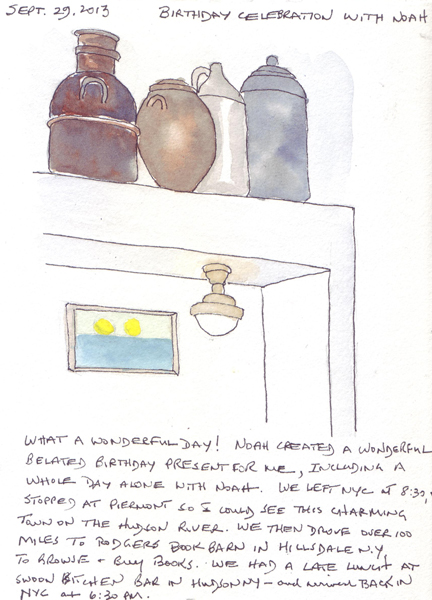 SEPT. 29, 2013 BIRTHDAY CELEBRATION WITH NOAH
WHAT A WONDERFUL DAY! NOAH CREATED A WONDERFUL
BELATED BIRTHDAY PRESENT FOR ME, INCLUDING A
WHOLE DAY ALONE WITH NOAH. WE LEFT NYC AT 8:30,
STOPPED AT PIERMONT SO I COULD SEE THIS CHARMING
TOWN ON THE HUDSON RIVER. WE THEN DROVE OVER 100
MILES TO RODGERS BOOK BARN IN HILLSDALE N.Y,
TO BROWSE + BUY BOOKS. WE HAD A LATE LUNCH AT
SWOON KITCHEN BAR IN HUDSON NY - and arrived BACK IN
NYC at 6:30 PM.